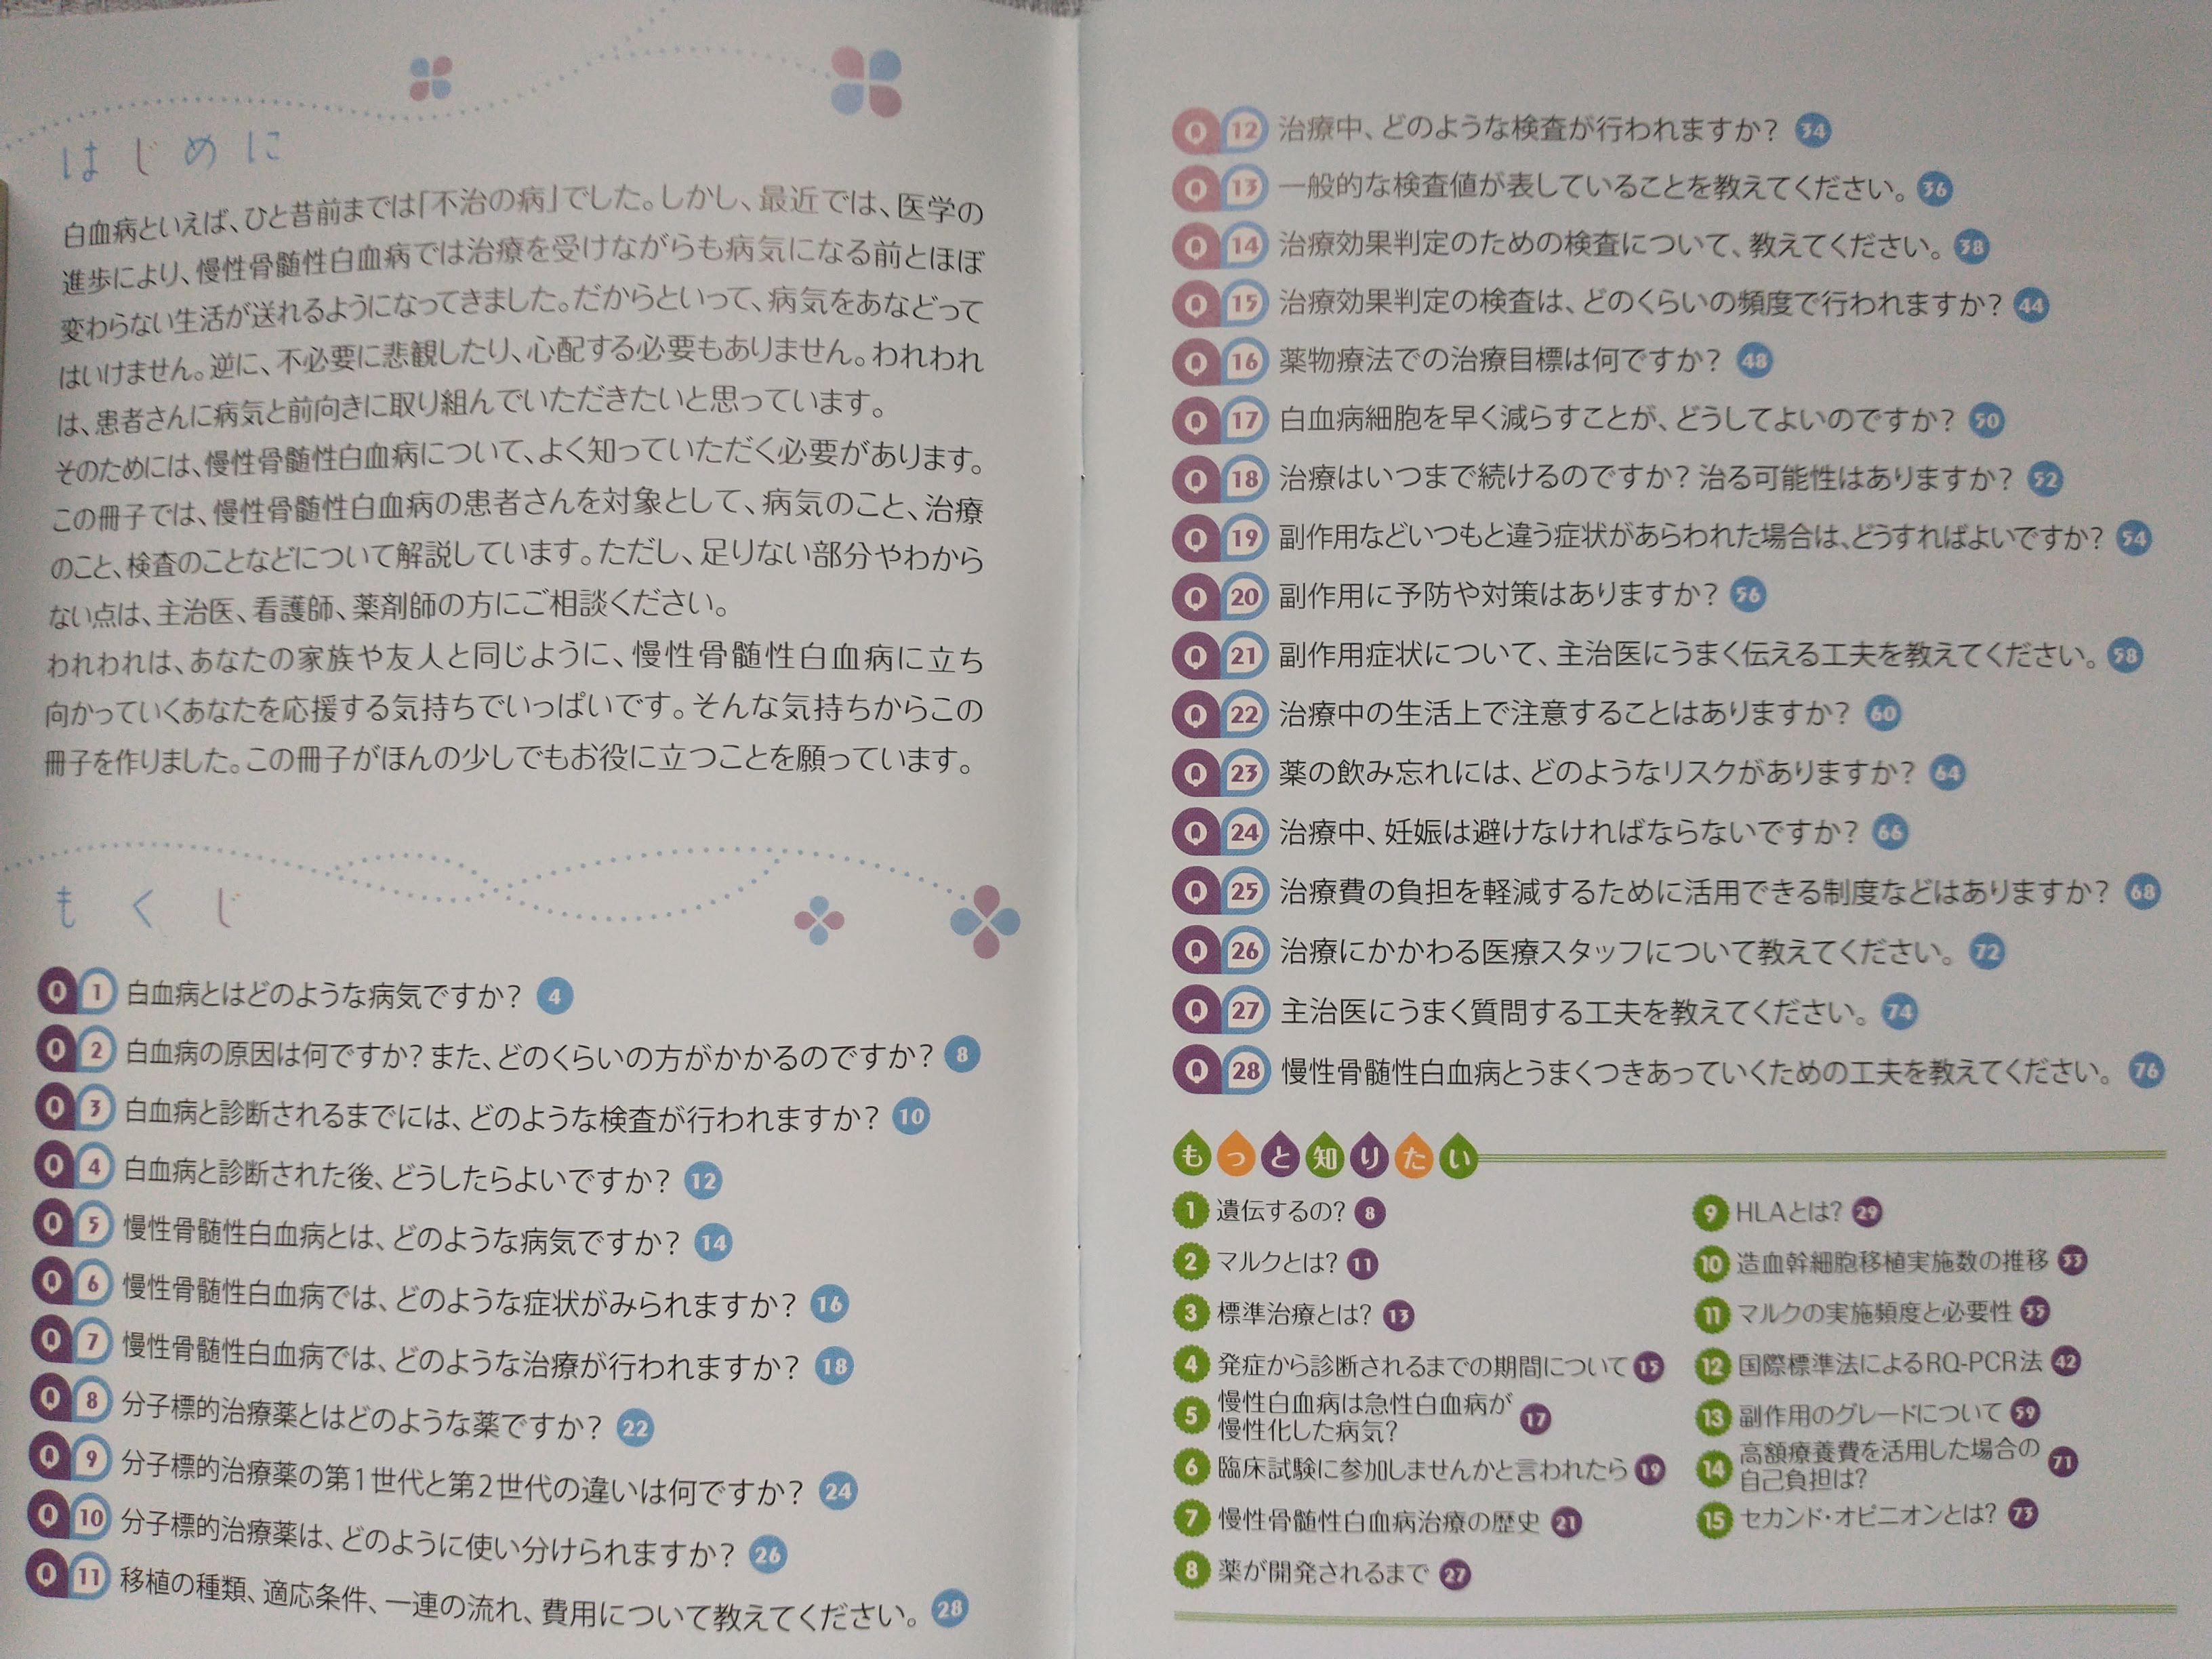 はじめに
白血病といえば、ひと昔前までは「不治の病」でした。しかし、最近では、医学の
進歩により、慢性骨髄性白血病では治療を受けながらも病気になる前とほぼ
変わらない生活が送れるようになってきました。だからといって、病気をあなどって
はいけません。逆に、不必要に悲観したり、心配する必要もありません。われわれ
は、患者さんに病気と前向きに取り組んでいただきたいと思っています。
そのためには、慢性骨髄性白血病について、よく知っていただく必要があります。
この冊子では、慢性骨髄性白血病の患者さんを対象として、病気のこと、治療
のこと、検査のことなどについて解説しています。ただし、足りない部分やわから
ない点は、主治医、看護師、薬剤師の方にご相談ください。
われわれは、あなたの家族や友人と同じように、慢性骨髄性白血病に立ち
向かっていくあなたを応援する気持ちでいっぱいです。そんな気持ちからこの
冊子を作りました。この冊子がほんの少しでもお役に立つことを願っています。
もくじ
Q1 白血病とはどのような病気ですか? 4
Q2 白血病の原因は何ですか? また、どのくらいの方がかかるのですか? 8
Q3 白血病と診断されるまでには、どのような検査が行われますか? 10
Q4 白血病と診断された後、どうしたらよいですか? 12
Q5 慢性骨髄性白血病とは、どのような病気ですか? 14
Q6 慢性骨髄性白血病では、どのような症状がみられますか? 16
Q7 慢性骨髄性白血病では、どのような治療が行われますか? 18
Q8 分子標的治療薬とはどのような薬ですか? 22
Q9 分子標的治療薬の第1世代と第2世代の違いは何ですか? 24
Q10 分子標的治療薬は、どのように使い分けられますか? 26
Q11 移植の種類、適応条件、一連の流れ、費用について教えてください。 28
Q12 治療中、どのような検査が行われますか? 34
Q13 一般的な検査値が表していることを教えてください。 36
Q14 治療効果判定のための検査について、教えてください。 38
Q15 治療効果判定の検査は、どのくらいの頻度で行われますか? 44
Q16 薬物療法での治療目標は何ですか? 48
Q17 白血病細胞を早く減らすことが、どうしてよいのですか? 50
Q18 治療はいつまで続けるのですか? 治る可能性はありますか? 52
Q19 副作用などいつもと違う症状があらわれた場合は、どうすればよいですか? 54
Q20 副作用に予防や対策はありますか? 56
Q21 副作用症状について、主治医にうまく伝える工夫を教えてください。 58
Q22 治療中の生活上で注意することはありますか? 60
Q23 薬の飲み忘れには、どのようなリスクがありますか? 64
Q24 治療中、妊娠は避けなければならないですか? 66
Q25 治療費の負担を軽減するために活用できる制度などはありますか? 68
Q26 治療にかかわる医療スタッフについて教えてください。 72
Q27 主治医にうまく質問する工夫を教えてください。 74
Q28 慢性骨髄性白血病とうまくつきあっていくための工夫を教えてください。 76
もっと知りたい
1 遺伝するの? 8
2 マルクとは? 11
3 標準治療とは? 13
4 発症から診断されるまでの期間について 15
5 慢性白血病は急性白血病が
慢性化した病気? 17
6 臨床試験に参加しませんかと言われたら 19
7 慢性骨髄性白血病治療の歴史 21
8 薬が開発されるまで 27
9 HLAとは? 29
10 造血幹細胞移植実施数の推移 33
11 マルクの実施頻度と必要性 35
12 国際標準法によるRQ-PCR法 42
13 副作用のグレードについて 59
14 高額療養費を活用した場合の
自己負担は? 71
15 セカンド・オピニオンとは? 73